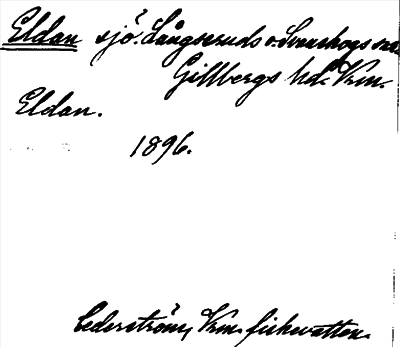 Eldan sjö. Långseruds o. Svanskogs snr
Gillbergs hd. Vrm.
Eldan.
1896.
Cederström, Vrm. fiskevatten.